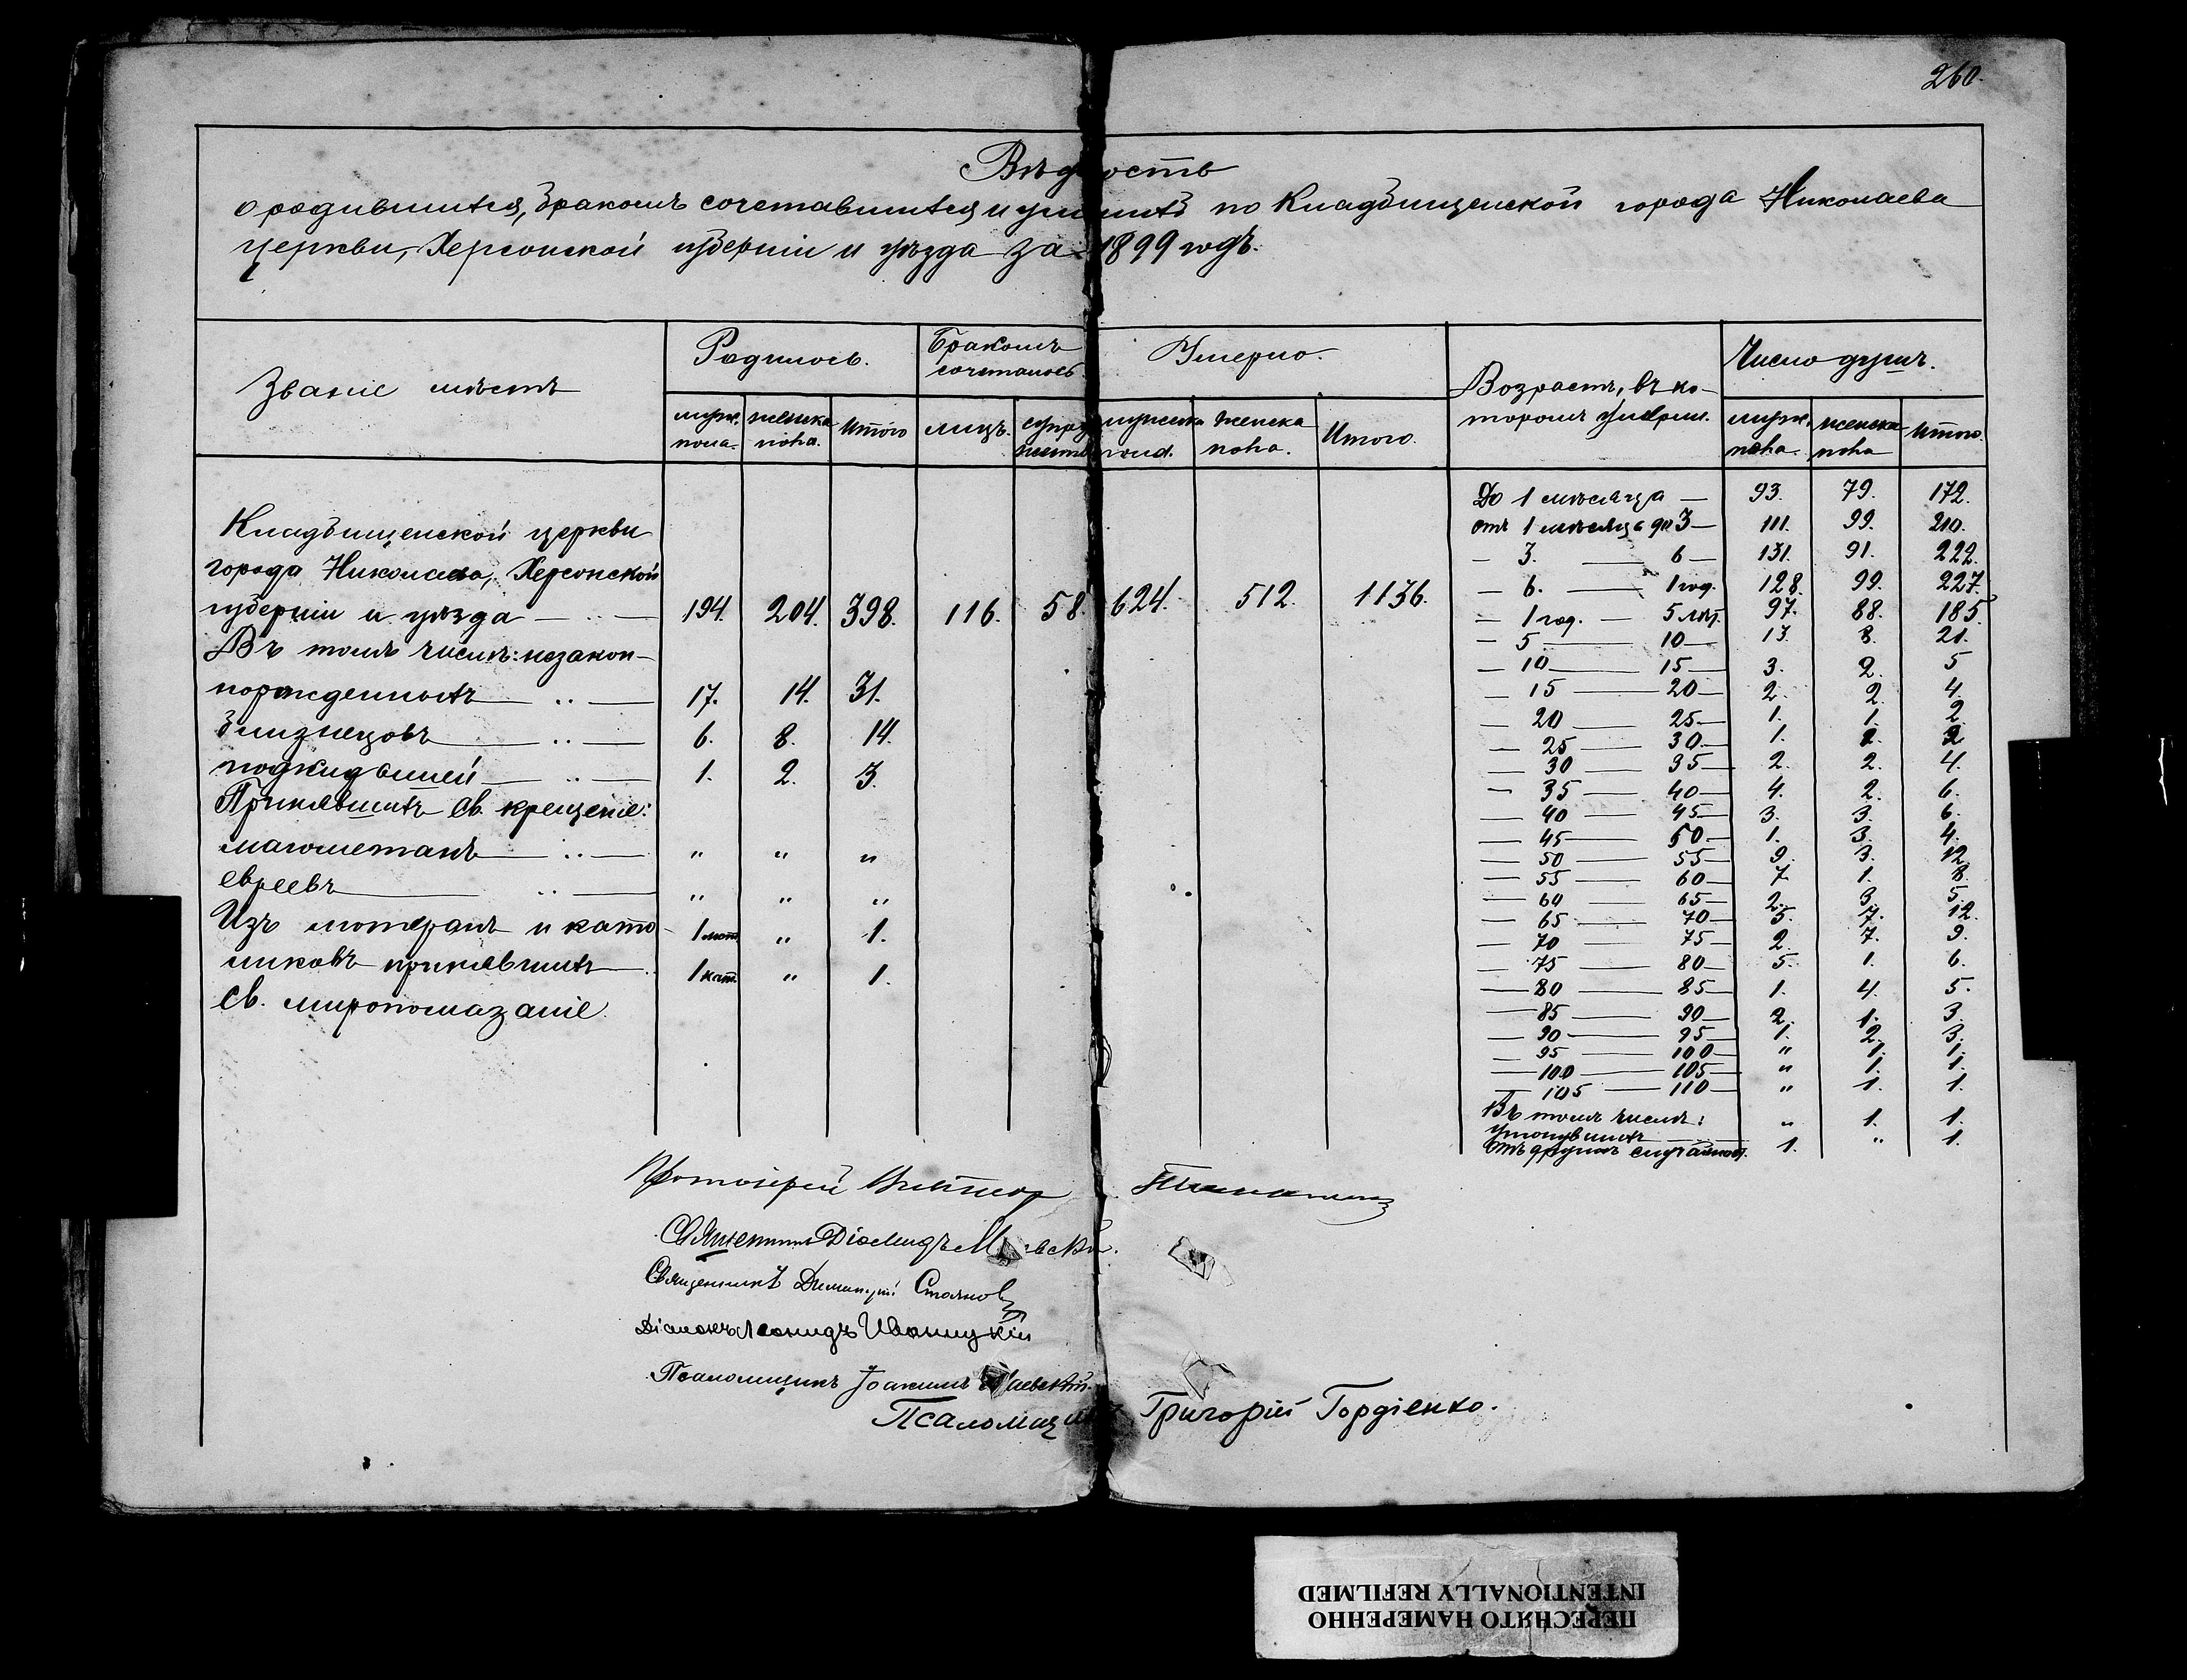 260.
Вѣдомость
о родившихся, бракомъ сочетавшихся и умершихъ по Кладбищенской города Николаева
церкви, Херсонской губерніи и уѣзда за 1899 годъ.
Званіе мѣстъ
Родилось.
Бракомъ сочеталось
Умерло.
Возрастъ, въ ко-
торомъ умерли.
Число душъ.
муж. пола. женска пола. Итого лицъ. супружествъ мужска пола. женска пола. Итого. муж. пола. женска пола Итого.
Кладбищенской церкви
города Николаева, Херсонской
губерніи и уѣзда 194. 204. 398. 116. 58. 624. 512. 1136.
Въ томъ числѣ: незакон-
норожденныхъ 17. 14. 31.
близнецовъ 6. 8. 14.
подкидышей 1. 2. 3.
Принявшихъ св. крещеніе:
магометанъ " " "
евреевъ " " "
Изъ лютеранъ и като- 1 лют. " 1.
ликовъ принявшихъ 1 кат. " 1.
св. миропомазаніе.
До 1 мѣсяца — 93. 79. 172.
отъ 1 мѣсяца до 3 — 111. 99. 210.
— 3. — 6 — 131. 91. 222.
— 6. — 1 год. 128. 99. 227.
— 1 год. — 5 лѣт. 97. 88. 185.
— 5 — 10 — 13. 8. 21.
— 10 — 15 — 3. 2. 5
— 15 — 20 — 2. 2. 4.
— 20 — 25 — 1. 1. 2.
— 25 — 30 — 1. 2
— 30 — 35 — 2. 2. 4.
— 35 — 40 — 4. 2. 6.
— 40 — 45 — 3. 3. 6.
— 45 — 50 — 1. 3. 4.
— 50 — 55 — 9. 3. 12.
— 55 — 60 — 7. 1. 8.
— 60 — 65 — 2. 3. 5.
— 65 — 70 — 5. 7. 12.
— 70 — 75 — 2. 7. 9.
— 75 — 80 — 5. 1. 6.
— 80 — 85 — 1. 4. 5.
— 85 — 90 — 2. 1. 3.
— 90 — 95 — 1. 2. 3.
— 95 — 100 — " 1. 1.
— 100 — 105 — " 1. 1.
— 105 — 110 — " 1. 1.
Въ томъ числѣ:
утонувшихъ " 1. 1.
отъ другихъ случайност. 1. " 1.
Протоіерей
Священникъ Діомидъ
Священникъ Димитрій Стоянов
Діаконъ Леонидъ Иваницкій
Псаломщикъ Іоакимъ
Псаломщикъ Григорій Гордіенко.
ПЕРЕСНЯТО НАМЕРЕННО
INTENTIONALLY REFILMED